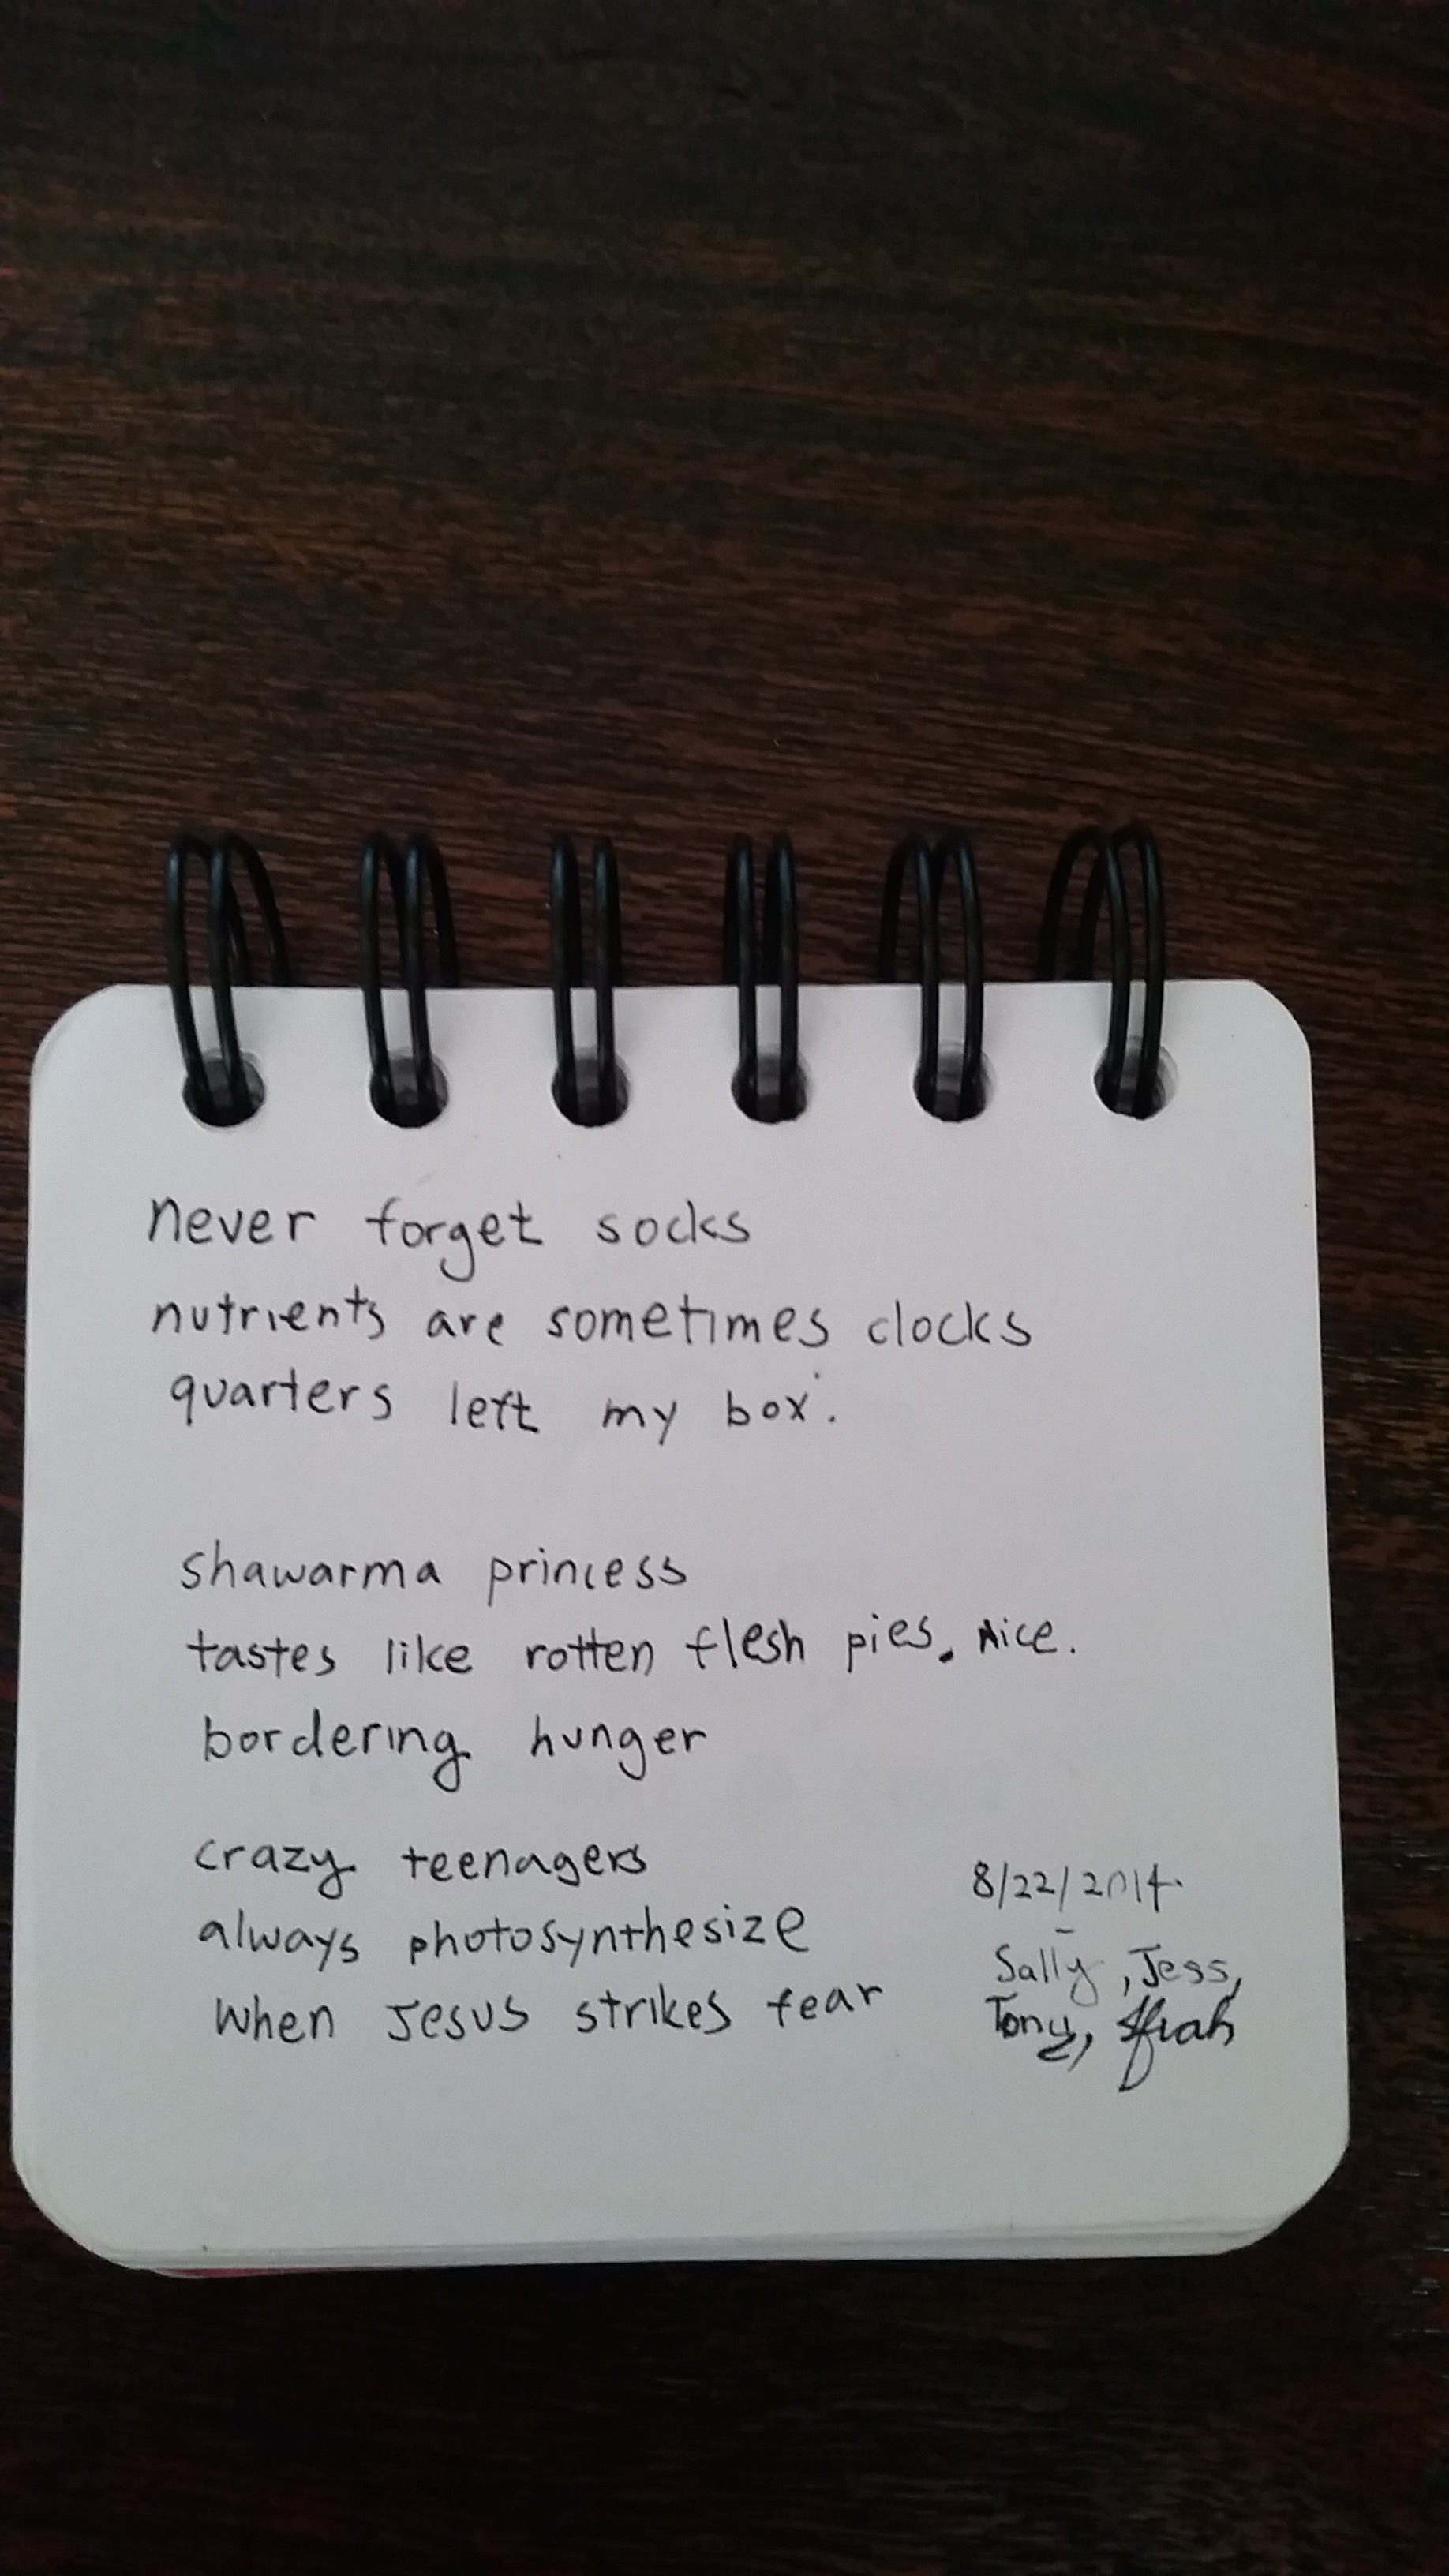 never forget socks
nutrients are sometimes clocks
quarters left my box.
shawarma princess
tastes like rotten flesh pies. Nice.
bordering hunger
crazy teenagers
always photosynthesize
when Jesus strikes fear
8/22/2014
-
Sally, Jess,
Tony,